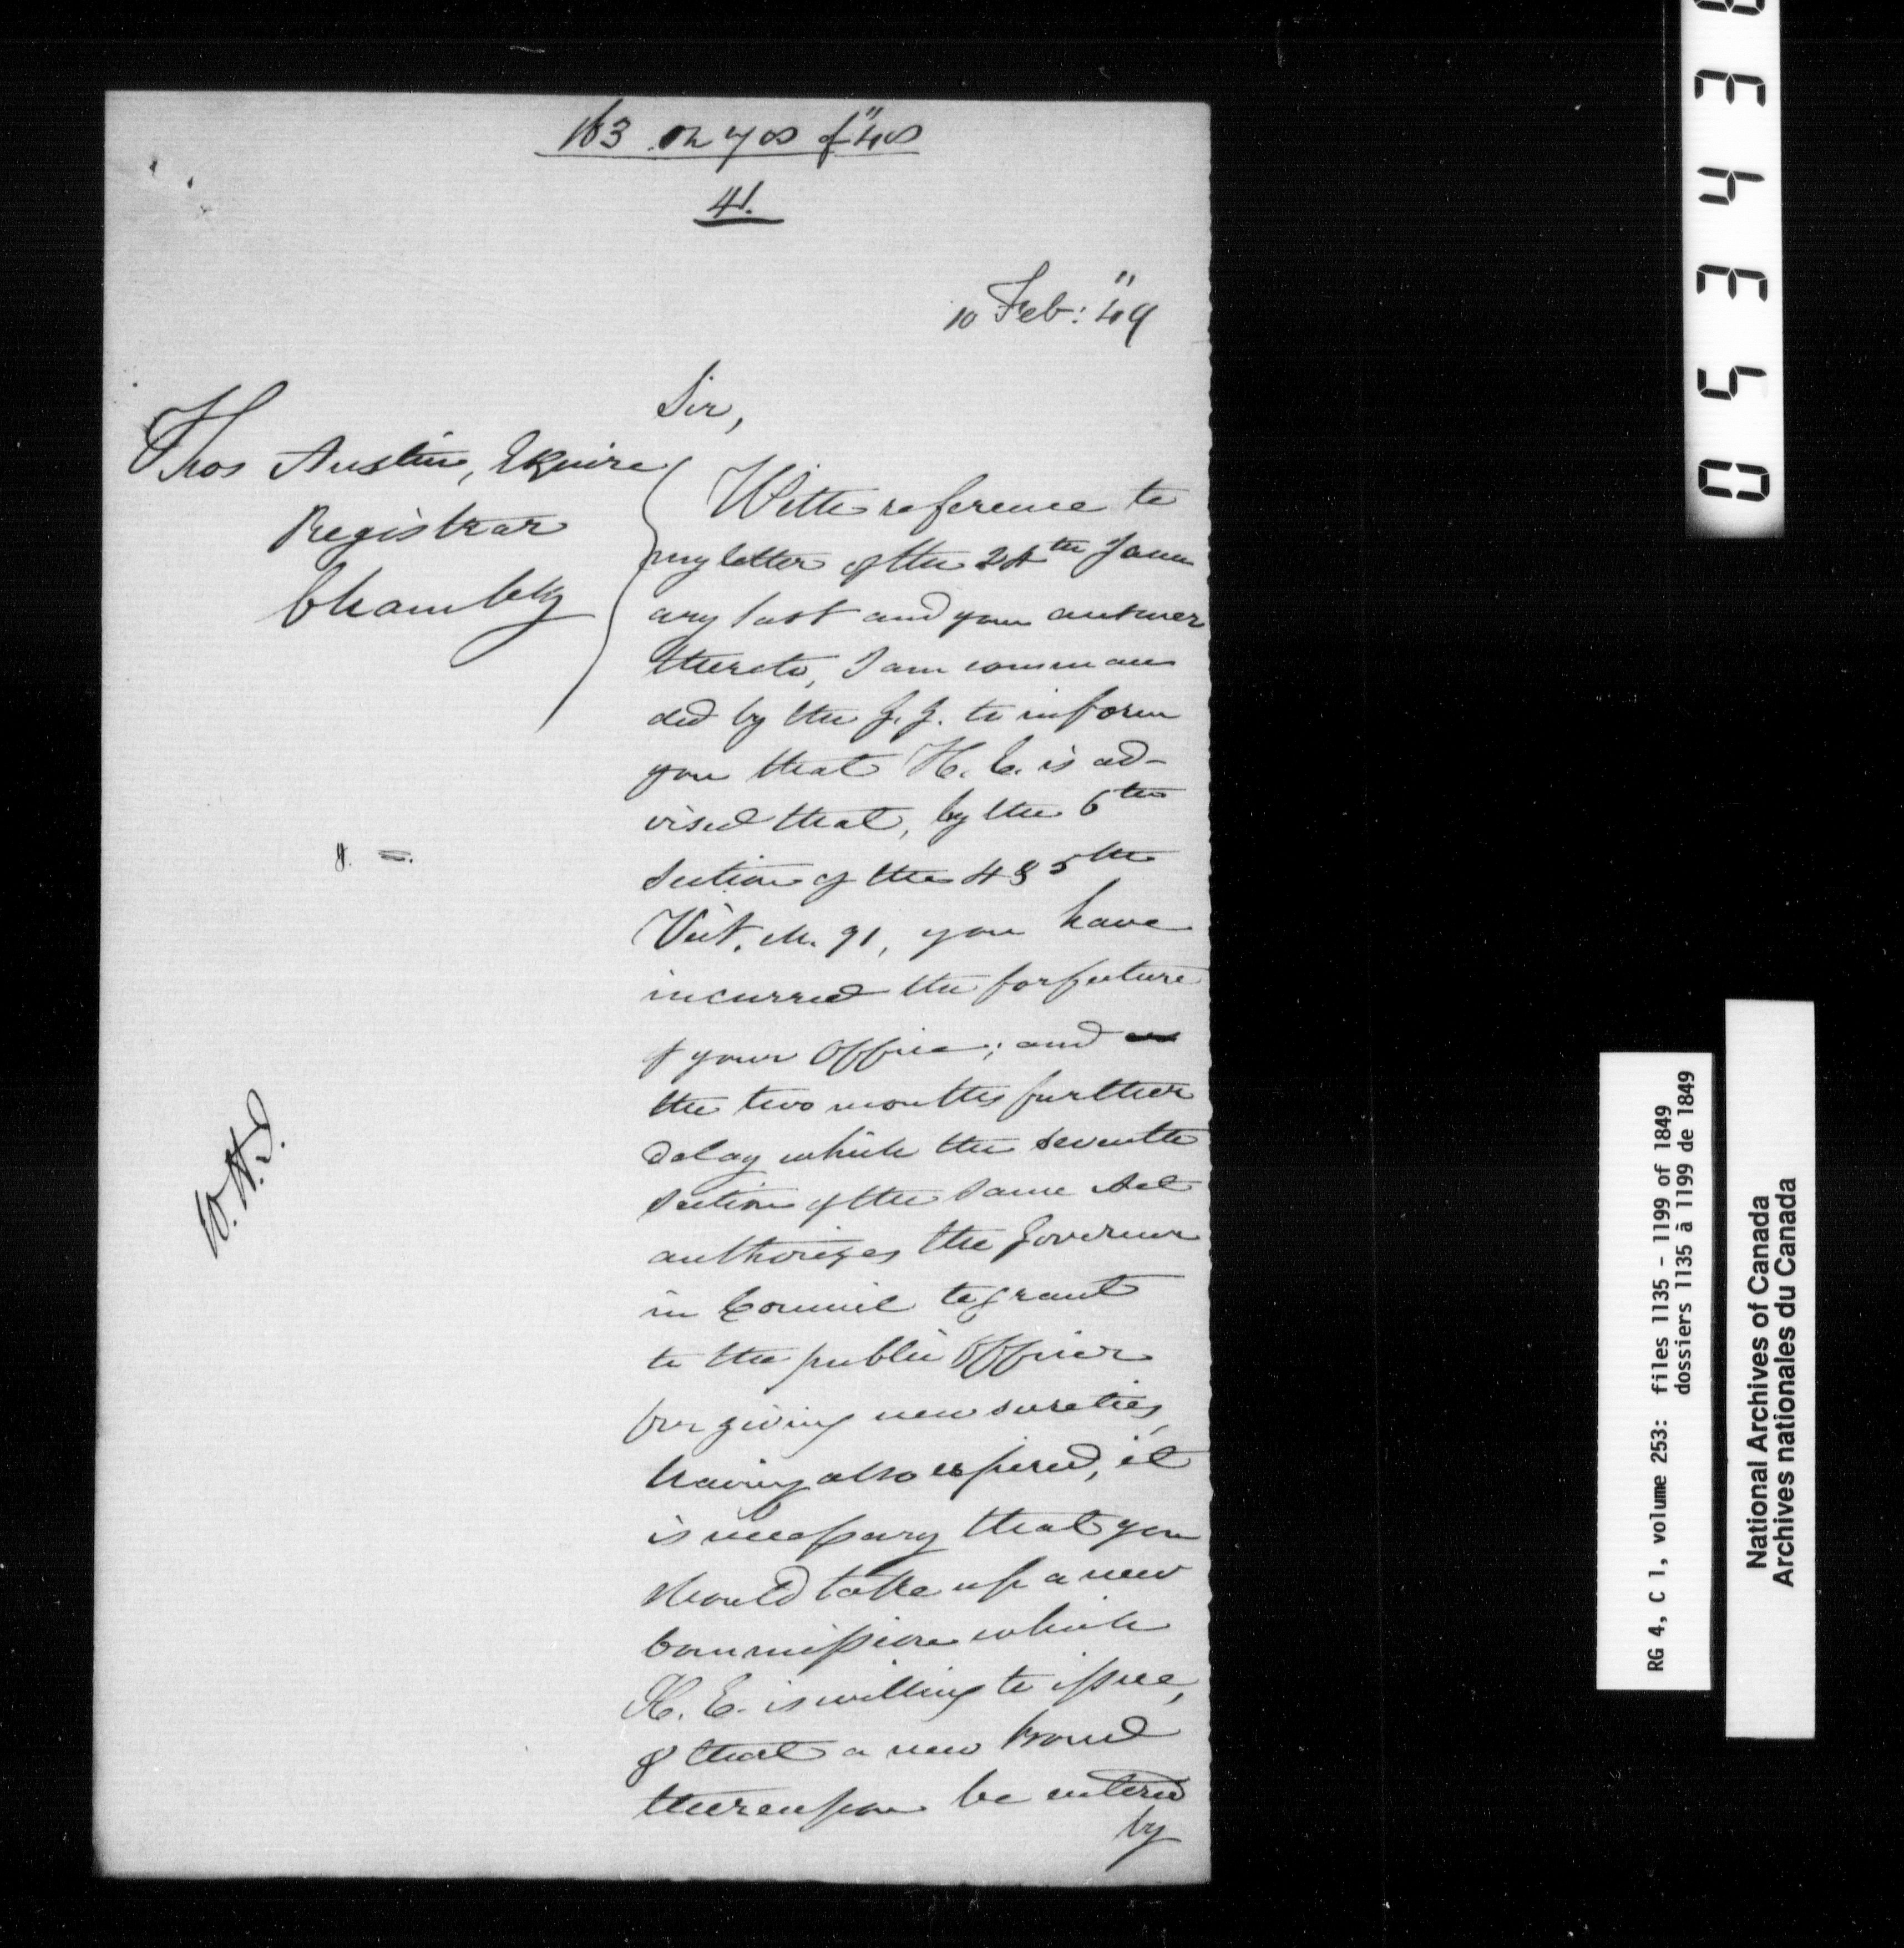 163 on 708 of "48
41.
10 Feb: "49
Sir,
Thos Austin, Esquire
Registrar
Chambly
With reference to
my letter of the 24th Janu
ary last and your answer
thereto, I am comman
ded by the G. G. to inform
you that H. E. is ad-
vised that, by the 6th
Section of the 4 & 5th
Vict. ch. 91, you have
incurred the forfeiture
of your Office; and
the two months further
delay which the seventh
Section of the same Act
authorizes the Governor
in Council to grant
to the public Officer
for giving new sureties,
having also expired, it
is necessary that you
should take up a new
Commission which
H. E. is willing to issue,
& that a new bond
thereupon be entered
by
RG 4, C 1, volume 253: files 1135 - 1199 of 1849
dossiers 1135 à 1199 de 1849
National Archives of Canada
Archives nationales du Canada
05343